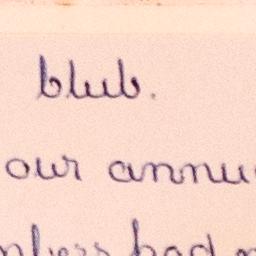 blub.
our annu
mbers had